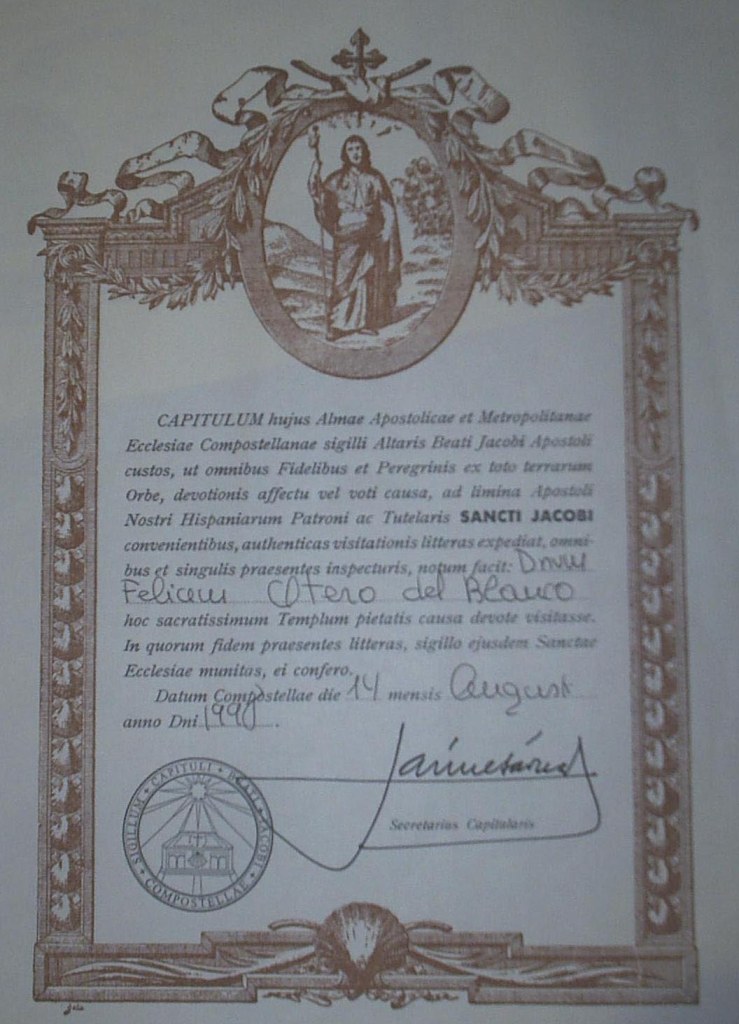 CAPITULUM hujus Almae Apostolicae et Metropolitanae
Ecclesiae Compostellanae sigilli Altaris Beati Jacobi Apostoli
custos, ut omnibus Fidelibus et Peregrinis ex toto terrarum
Orbe, devotionis affectu vel voti causa, ad limina Apostoli
Nostri Hispaniarum Patroni ac Tutelaris SANCTI JACOBI
convenientibus, authenticas visitationis litteras expediat, omni-
bus et singulis praesentes inspecturis, notum facit: Dnum
Felicem Otero del Blanco
hoc sacratissimum Templum pietatis causa devote visitasse.
In quorum fidem praesentes litteras, sigillo ejusdem Sanctae
Ecclesiae munitas, ei confero.
Datum Compostellae die 14 mensis August
anno Dni 1990.
Secretarius Capitularis
SIGILLUM • CAPITULI • BEATI • JACOBI • COMPOSTELLAE •